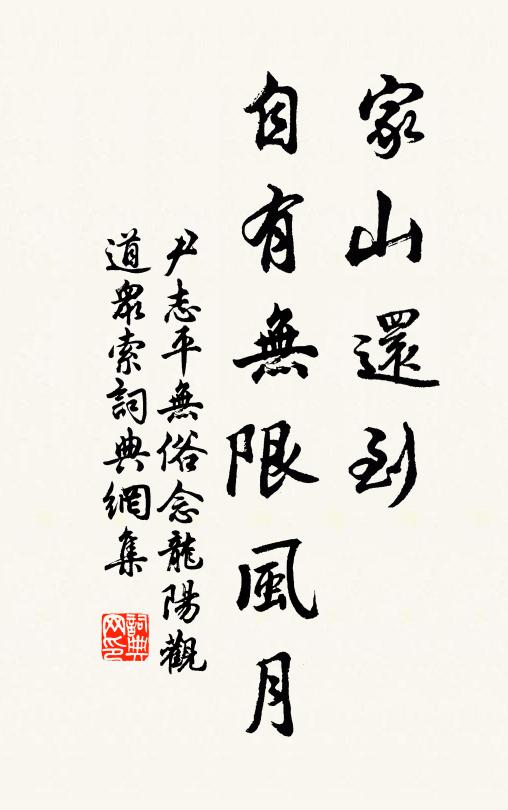 家山還到
自有無限風月
尹志平無俗念龍陽觀
道眾索詞典網集
詞典
网印